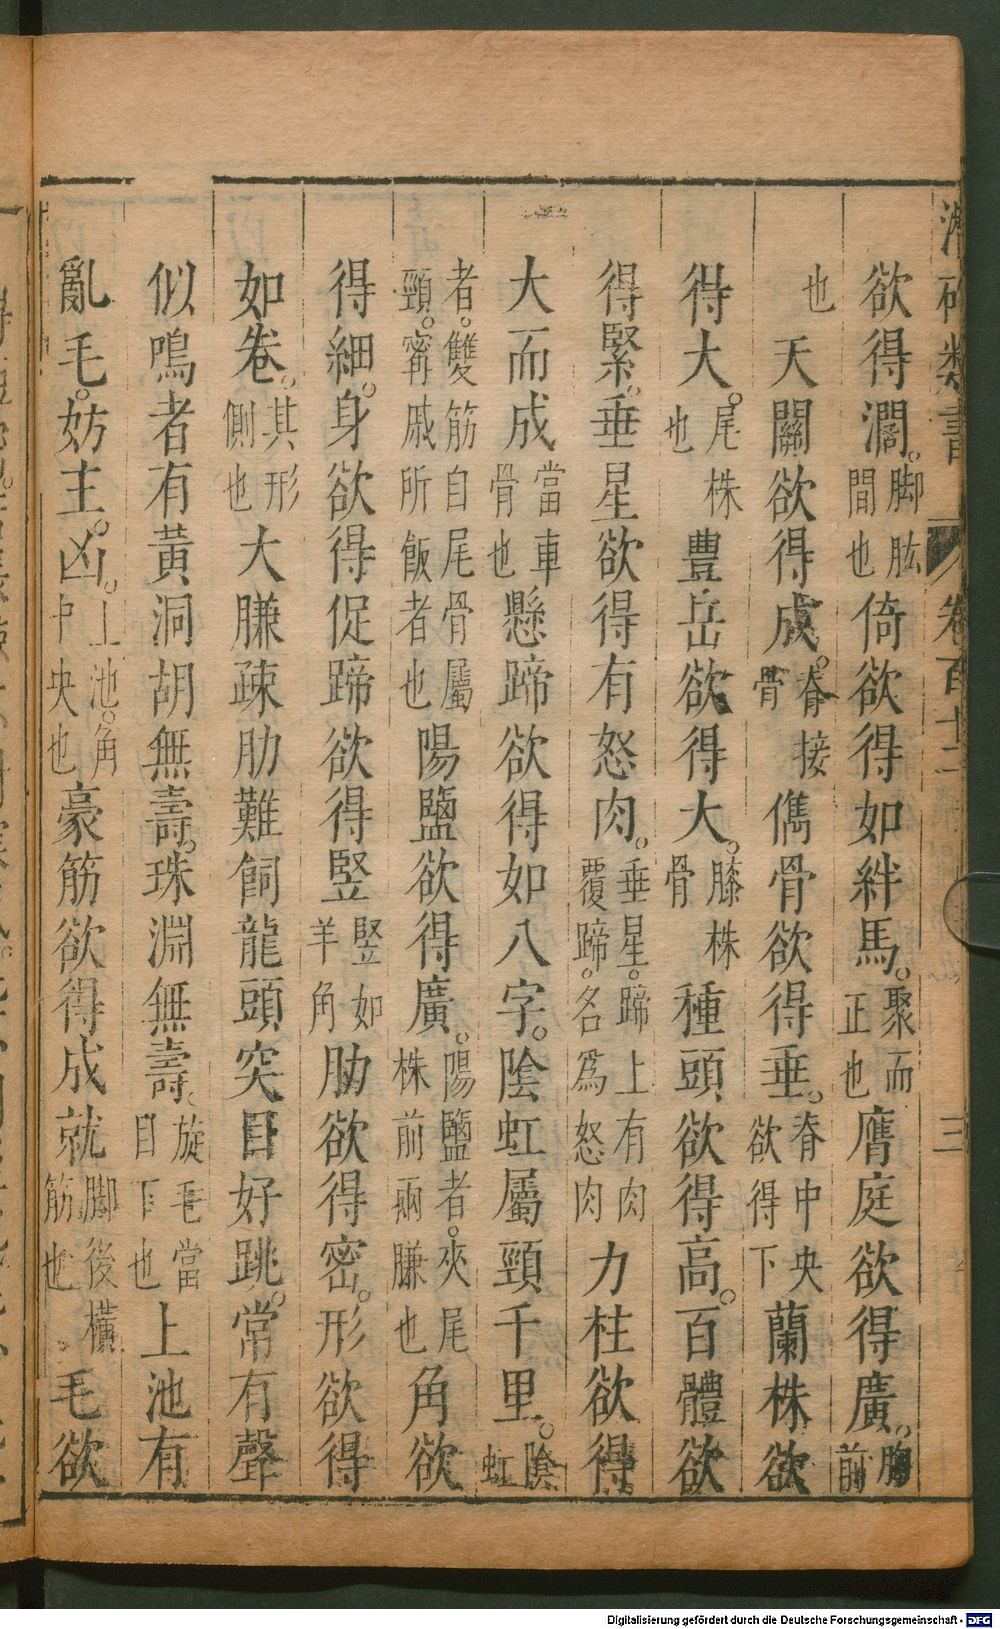 卷百十二 三
欲得濶。脚肱間也倚欲得如絆馬。聚而正也膺庭欲得廣。胸前
也天關欲得成。脊接骨儁骨欲得垂。脊中央欲得下蘭株欲
得大。尾株也豐岳欲得大。膝株骨種頭欲得高。百體欲
得緊。垂星欲得有怒肉。垂星。蹄上有肉覆蹄。名為怒肉力柱欲得
大而成當車骨也懸蹄欲得如八字。陰虹屬頸千里。陰虹
者。雙筋自尾骨屬頸。甯戚所飯者也陽鹽欲得廣。陽鹽者。夾尾株前兩膁也角欲
得細。身欲得促蹄欲得竪竪如羊角肋欲得密。形欲得
如卷。其形側也大膁疎肋難飼龍頭突目好跳。常有聲
似鳴者有黃洞胡無壽。珠淵無壽。旋毛當目下也上池有
亂毛。妨主。凶。上池。角中央也豪筋欲得成就脚後橫筋也毛欲
Digitalisierung gefördert durch die Deutsche Forschungsgemeinschaft - DFG